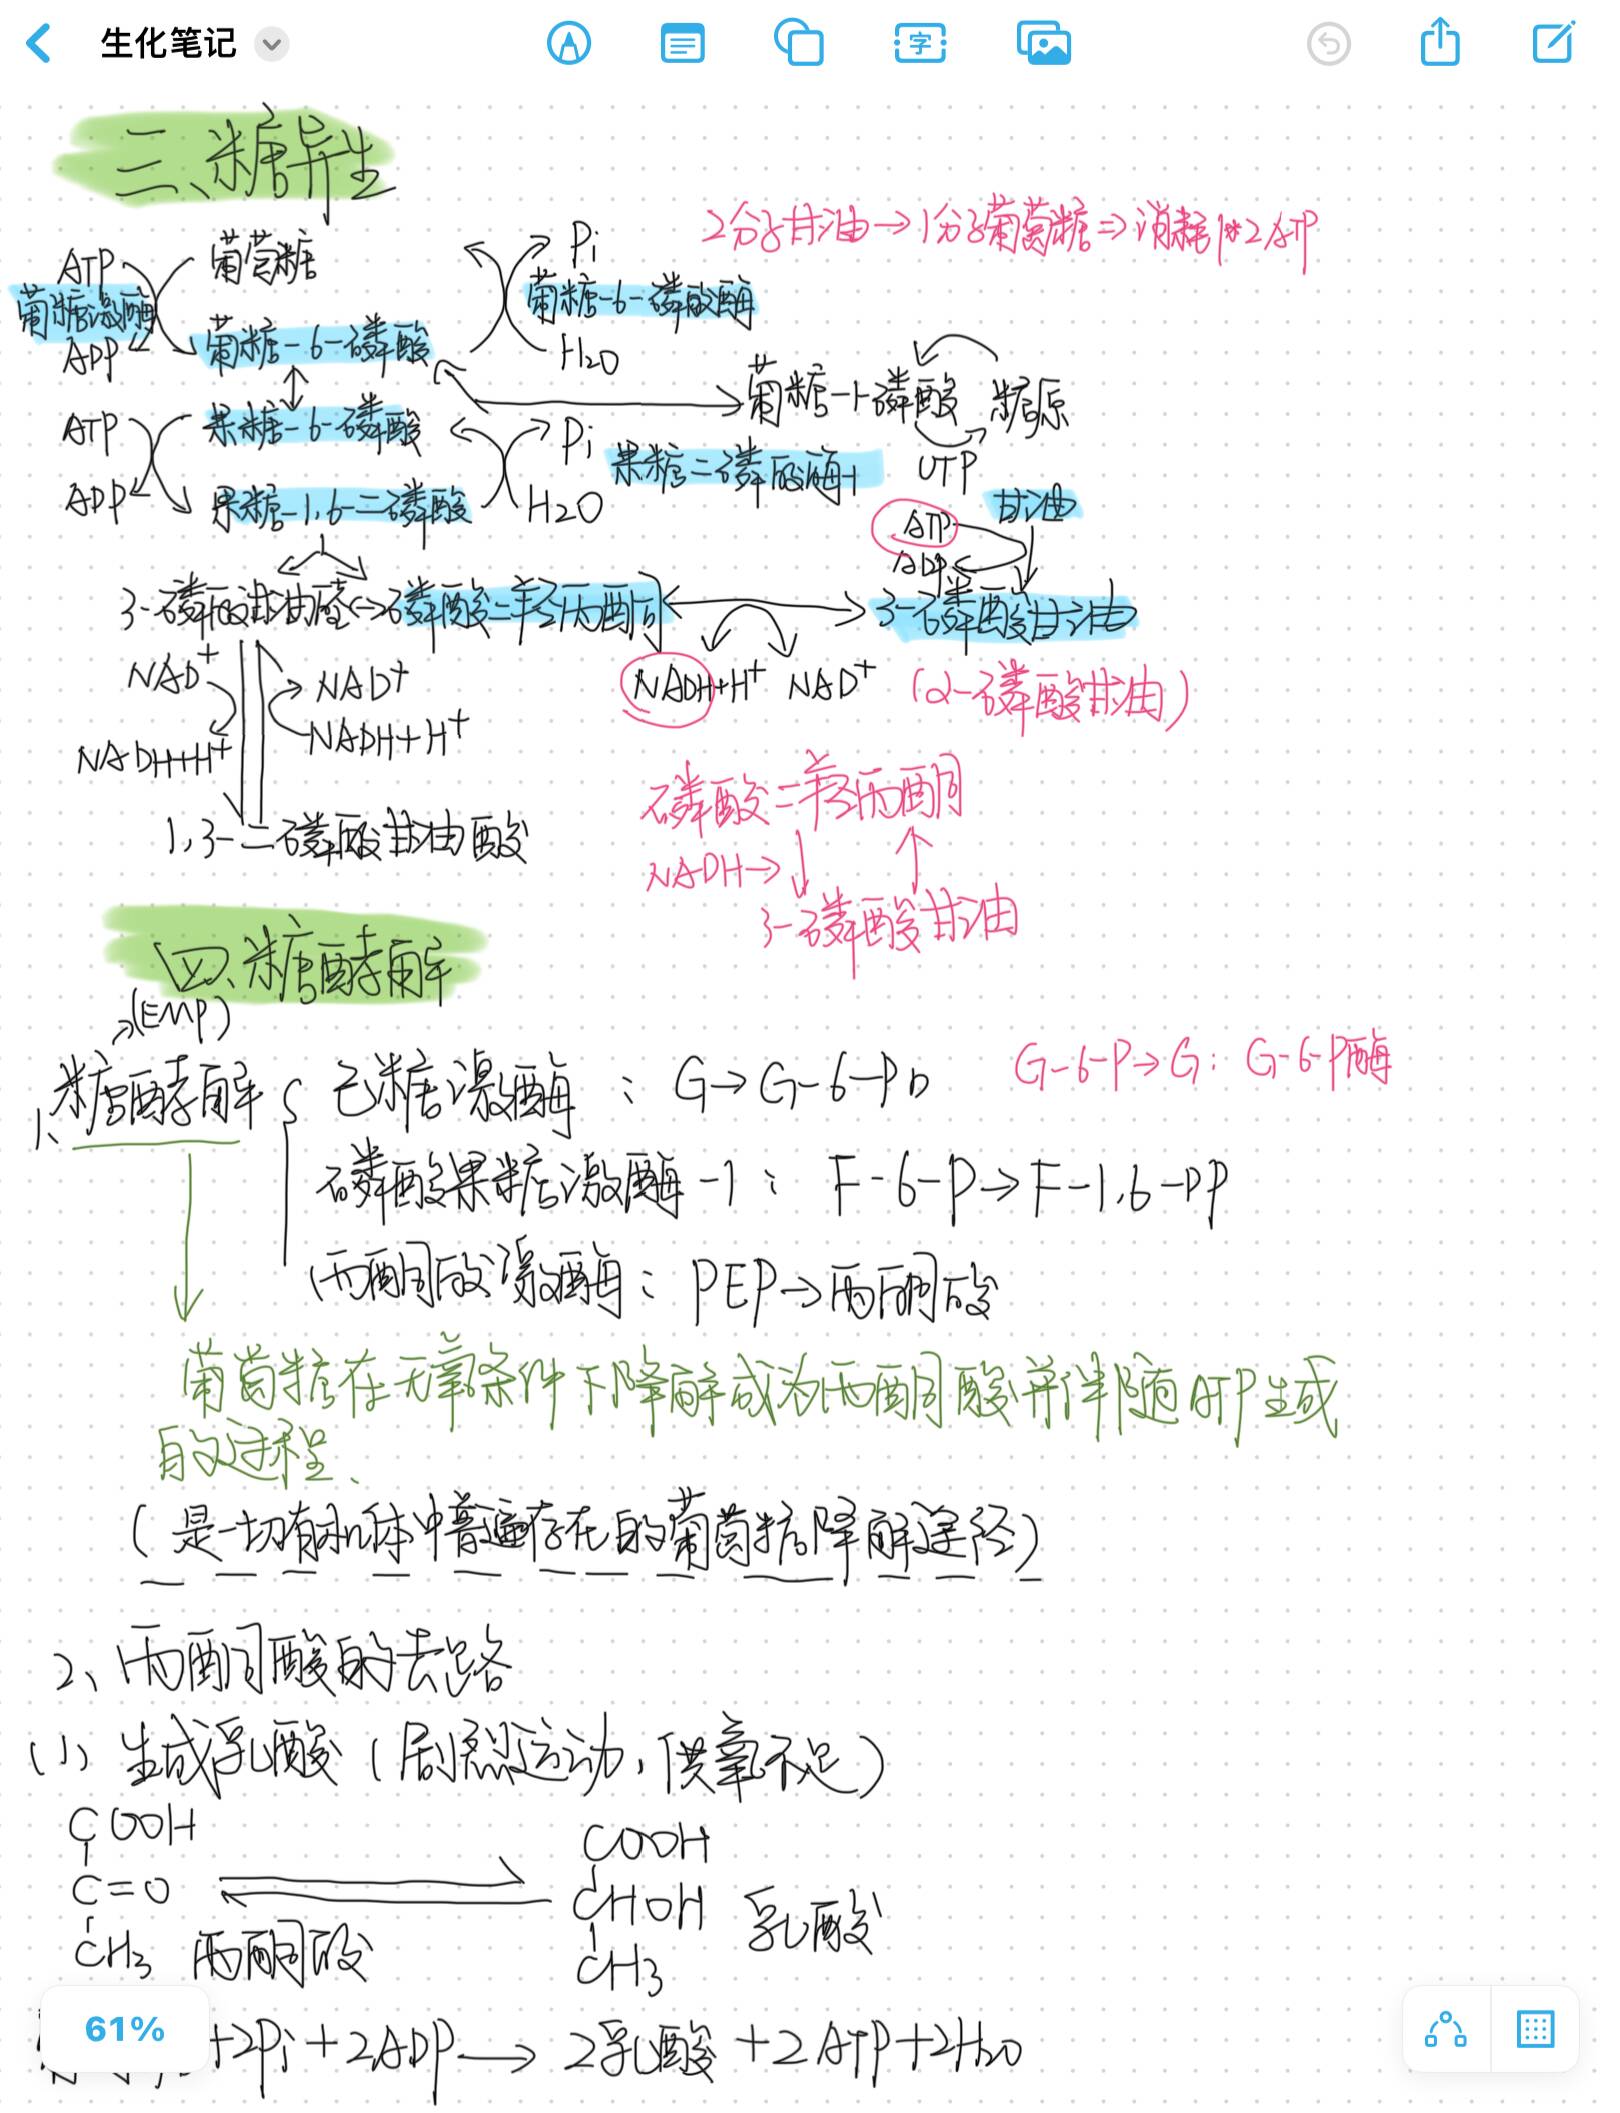 生化笔记
字
三、糖异生
2分子甘油→1分子葡萄糖⇒消耗1*2ATP
ATP 葡萄糖 Pi
葡糖激酶 葡糖-6-磷酸酶
ADP 葡糖-6-磷酸 H2O
葡糖-1-磷酸 糖原
ATP 果糖-6-磷酸 Pi
果糖二磷酸酶-1 UTP
ADP 果糖-1,6-二磷酸 H2O 甘油
ATP
ADP
3-磷酸甘油醛↔磷酸二羟丙酮 3-磷酸甘油
NAD+ NAD+ NADH+H+ NAD+ (α-磷酸甘油)
NADH+H+ NADH+H+
磷酸二羟丙酮
1,3-二磷酸甘油酸
NADH→
3-磷酸甘油
四、糖酵解
(EMP)
1、糖酵解 己糖激酶：G→G-6-P G-6-P→G：G-6-P酶
磷酸果糖激酶-1：F-6-P→F-1,6-PP
丙酮酸激酶：PEP→丙酮酸
葡萄糖在无氧条件下降解成为丙酮酸并伴随ATP生成
的过程、
(是一切有机体中普遍存在的葡萄糖降解途径)
2、丙酮酸的去路
(1) 生成乳酸(剧烈运动,供氧不足)
COOH COOH
C=O CHOH 乳酸
CH3 丙酮酸 CH3
61%
+2Pi+2ADP→2乳酸+2ATP+2H2O